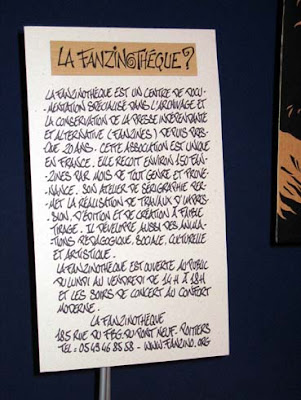 LA FANZINOTHÈQUE ?
LA FANZINOTHÈQUE EST UN CENTRE DE DOCU-
MENTATION SPÉCIALISÉ DANS L'ARCHIVAGE ET
LA CONSERVATION DE LA PRESSE INDÉPENDANTE
ET ALTERNATIVE (FANZINES) DEPUIS PRES-
QUE 20 ANS. CETTE ASSOCIATION EST UNIQUE
EN FRANCE. ELLE REÇOIT ENVIRON 150 FAN-
ZINES PAR MOIS DE TOUT GENRE ET PROVE-
NANCE. SON ATELIER DE SÉRIGRAPHIE PER-
MET LA RÉALISATION DE TRAVAUX D'IMPRES-
SION, D'ÉDITION ET DE CRÉATION À FAIBLE
TIRAGE. IL DÉVELOPPE AUSSI DES ANIMA-
TIONS PÉDAGOGIQUE, SOCIALE, CULTURELLE
ET ARTISTIQUE.
LA FANZINOTHÈQUE EST OUVERTE AU PUBLIC
DU LUNDI AU VENDREDI DE 14H À 18H
ET LES SOIRS DE CONCERT AU CONFORT
MODERNE.
LA FANZINOTHÈQUE
185 RUE DU FBG. DU PONT NEUF. POITIERS
TEL : 05 49 46 85 58 - WWW.FANZINO.ORG